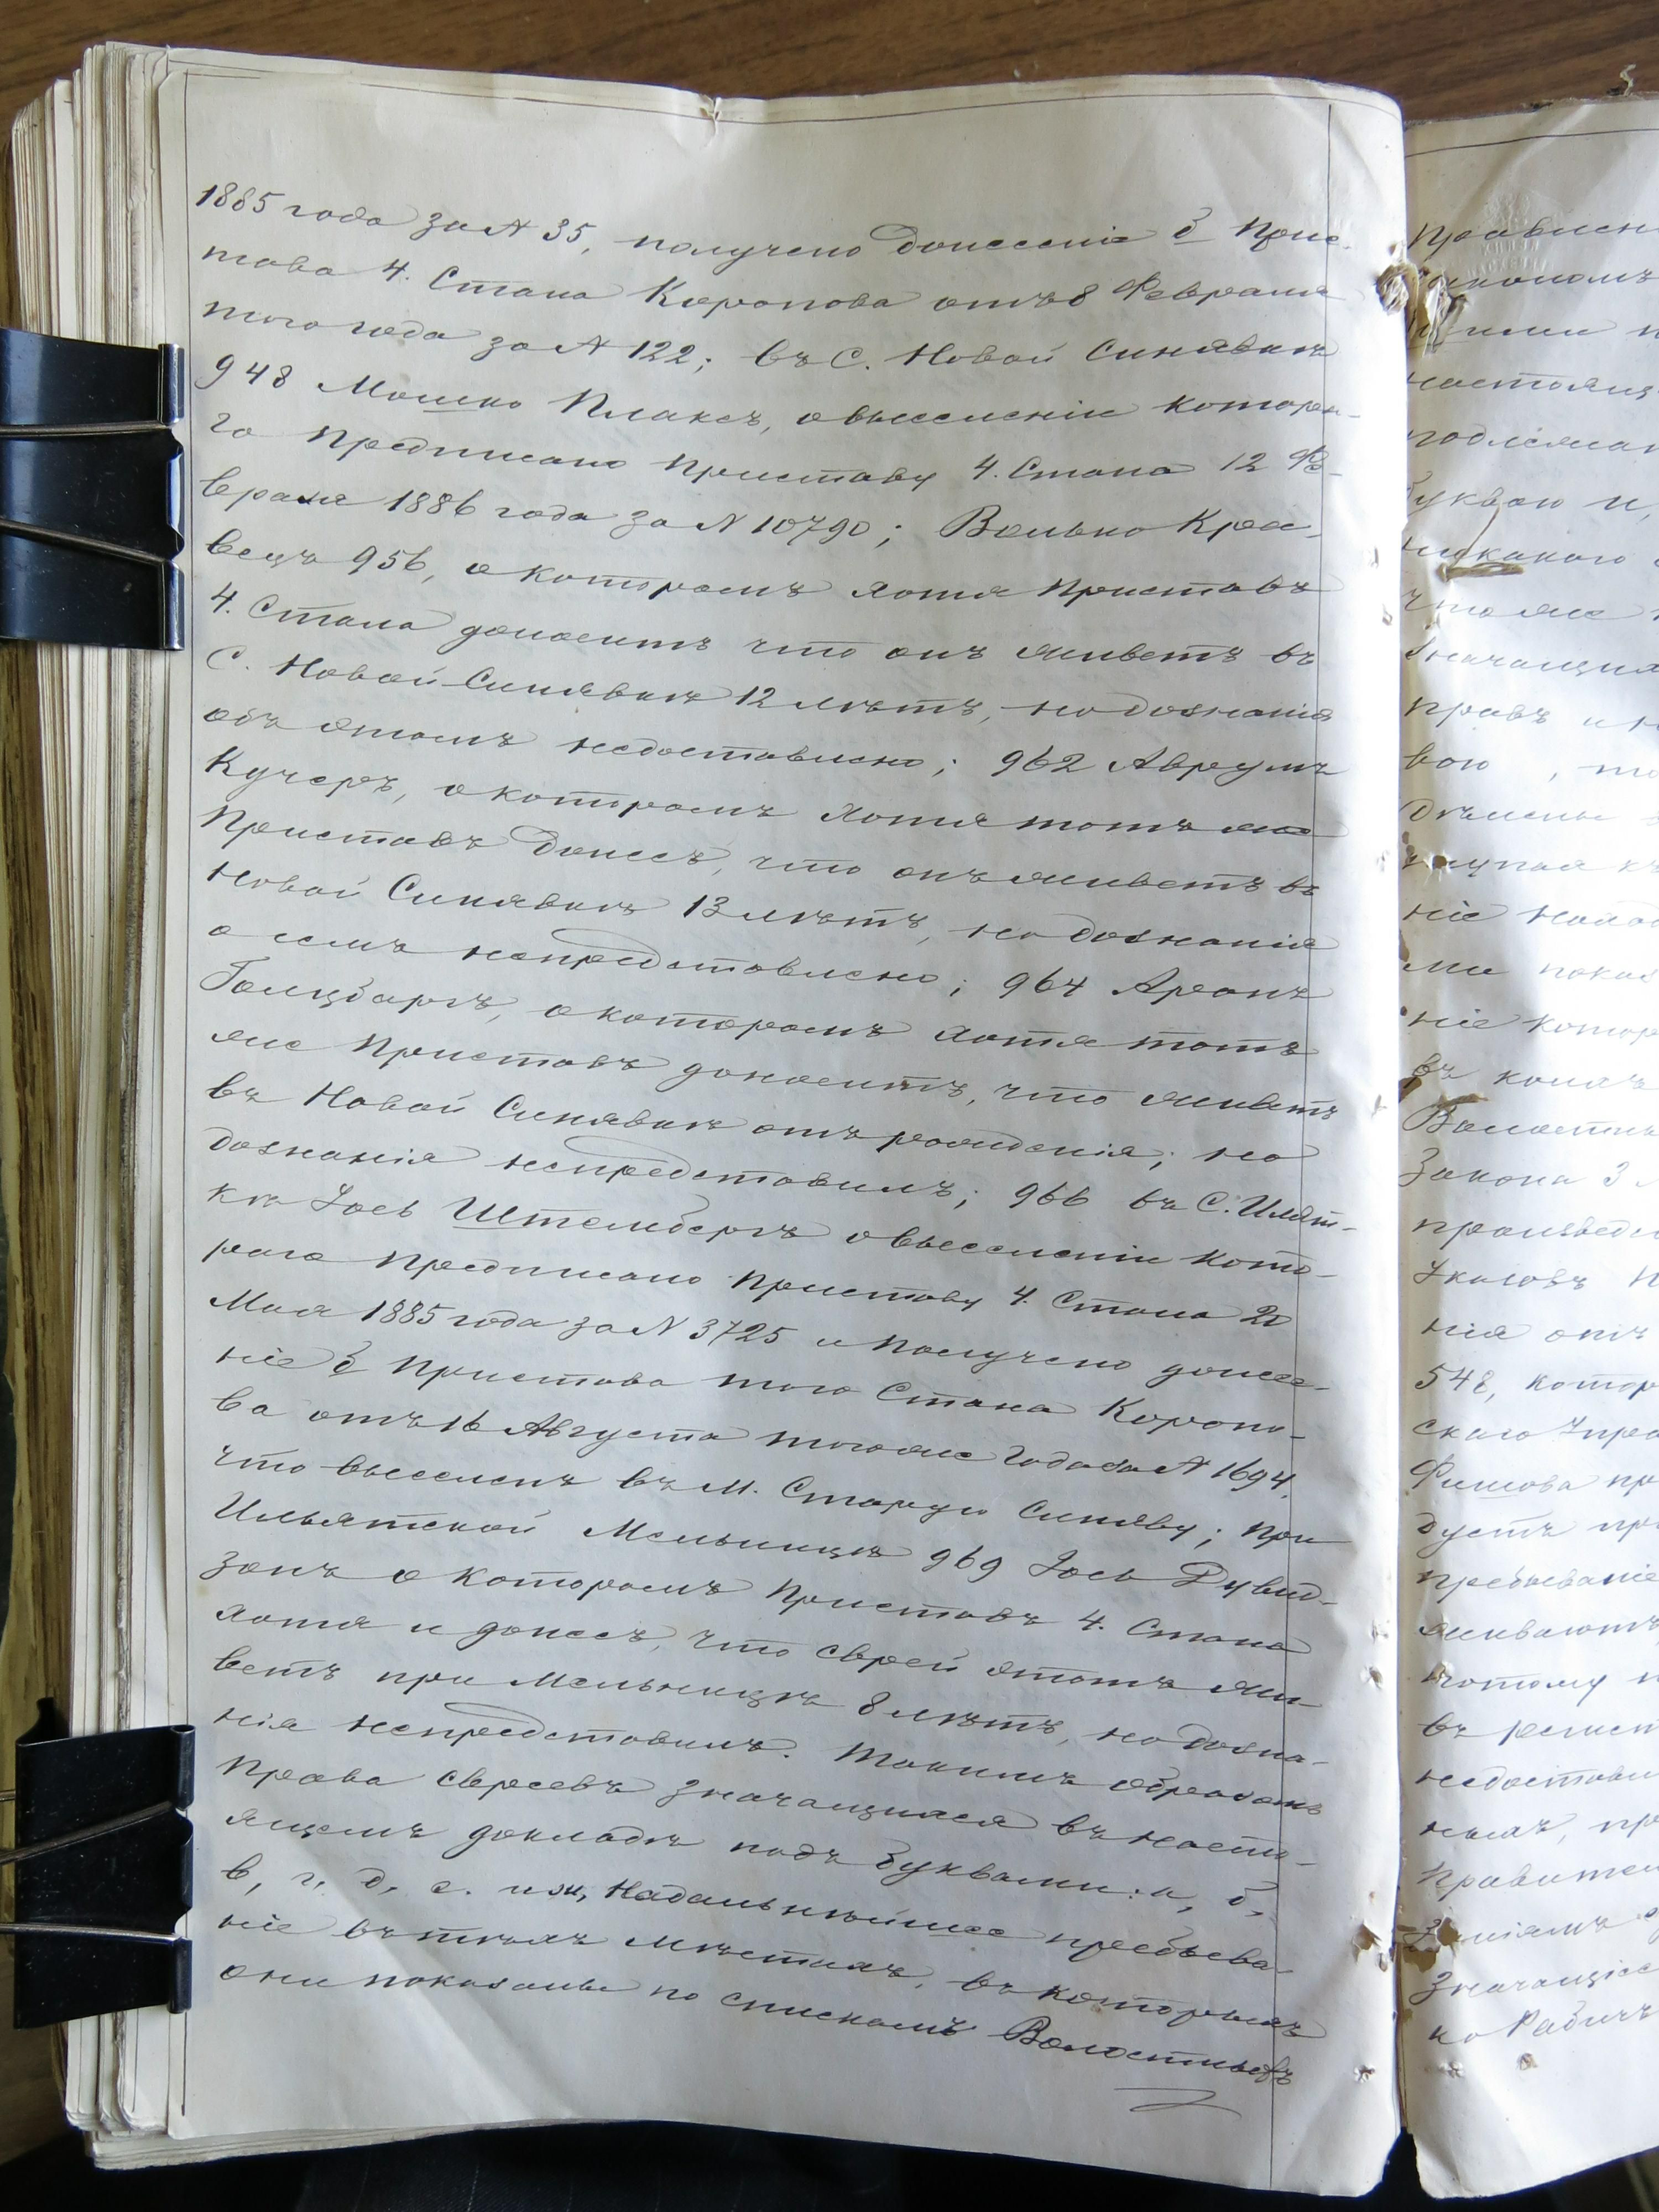 1885 года за № 35, получено донесеніе б. Прис-
тава 4. Стана Коропова отъ 8 Февраля
того года за № 122; въ С. Новой Синявкѣ
948 Мошко Плаксъ, о выселеніи котора-
го предписано Приставу 4. Стана 12 Фе-
враля 1886 года за № 10790; Волько Кра-
вецъ 956, о которомъ хотя Приставъ
4. Стана доноситъ что онъ живетъ въ
С. Новой Синявкѣ 12 лѣтъ, но дознанія
объ этомъ недоставлено; 962 Аврумъ
Кучеръ, о которомъ хотя тотъ же
Приставъ донесъ, что онъ живетъ въ
Новой Синявкѣ 13 лѣтъ, но дознанія
о семъ непредставлено; 964 Аронъ
Гольцбаргъ, о которомъ хотя тотъ
же Приставъ доноситъ, что живетъ
въ Новой Синявкѣ отъ рожденія; но
дознанія непредставилъ; 966 въ С. Илят-
кѣ Іось Штельбергъ о выселеніи кото-
раго предписано Приставу 4. Стана 20
Мая 1885 года за № 3725 и получено донесе-
ніе б. Пристава того Стана Коропо-
ва отъ 16 Августа того же года за № 1694,
что выселенъ въ М. Старую Синяву; при
Ильятской Мельницѣ 969 Іось Дувид-
зонъ о которомъ Приставъ 4. Стана
хотя и донесъ, что еврей этотъ жи-
ветъ при Мельницѣ 8 лѣтъ, но дозна-
нія непредставилъ. Такимъ образомъ
Права евреевъ значащихся въ насто-
ящемъ докладѣ подъ буквами: а, б,
в, г, д, е. и ж, на дальнѣйшее пребыва-
ніе въ тѣхъ мѣстахъ, въ которыхъ
они показаны по спискамъ Волостныхъ
Правлен
настоящ
буквою и,
никакого
что же
значащія
правъ и н
вою , то
ніе
ми показ
ніе котор
въ
Волостн
Закона 3
произведе
Указовъ
нія отъ
548, котор
скаго Упра
пр
дустъ пр
пребываніе
живаютъ
потому
въ
недостави
ныхъ, пр
Правител
значащіес